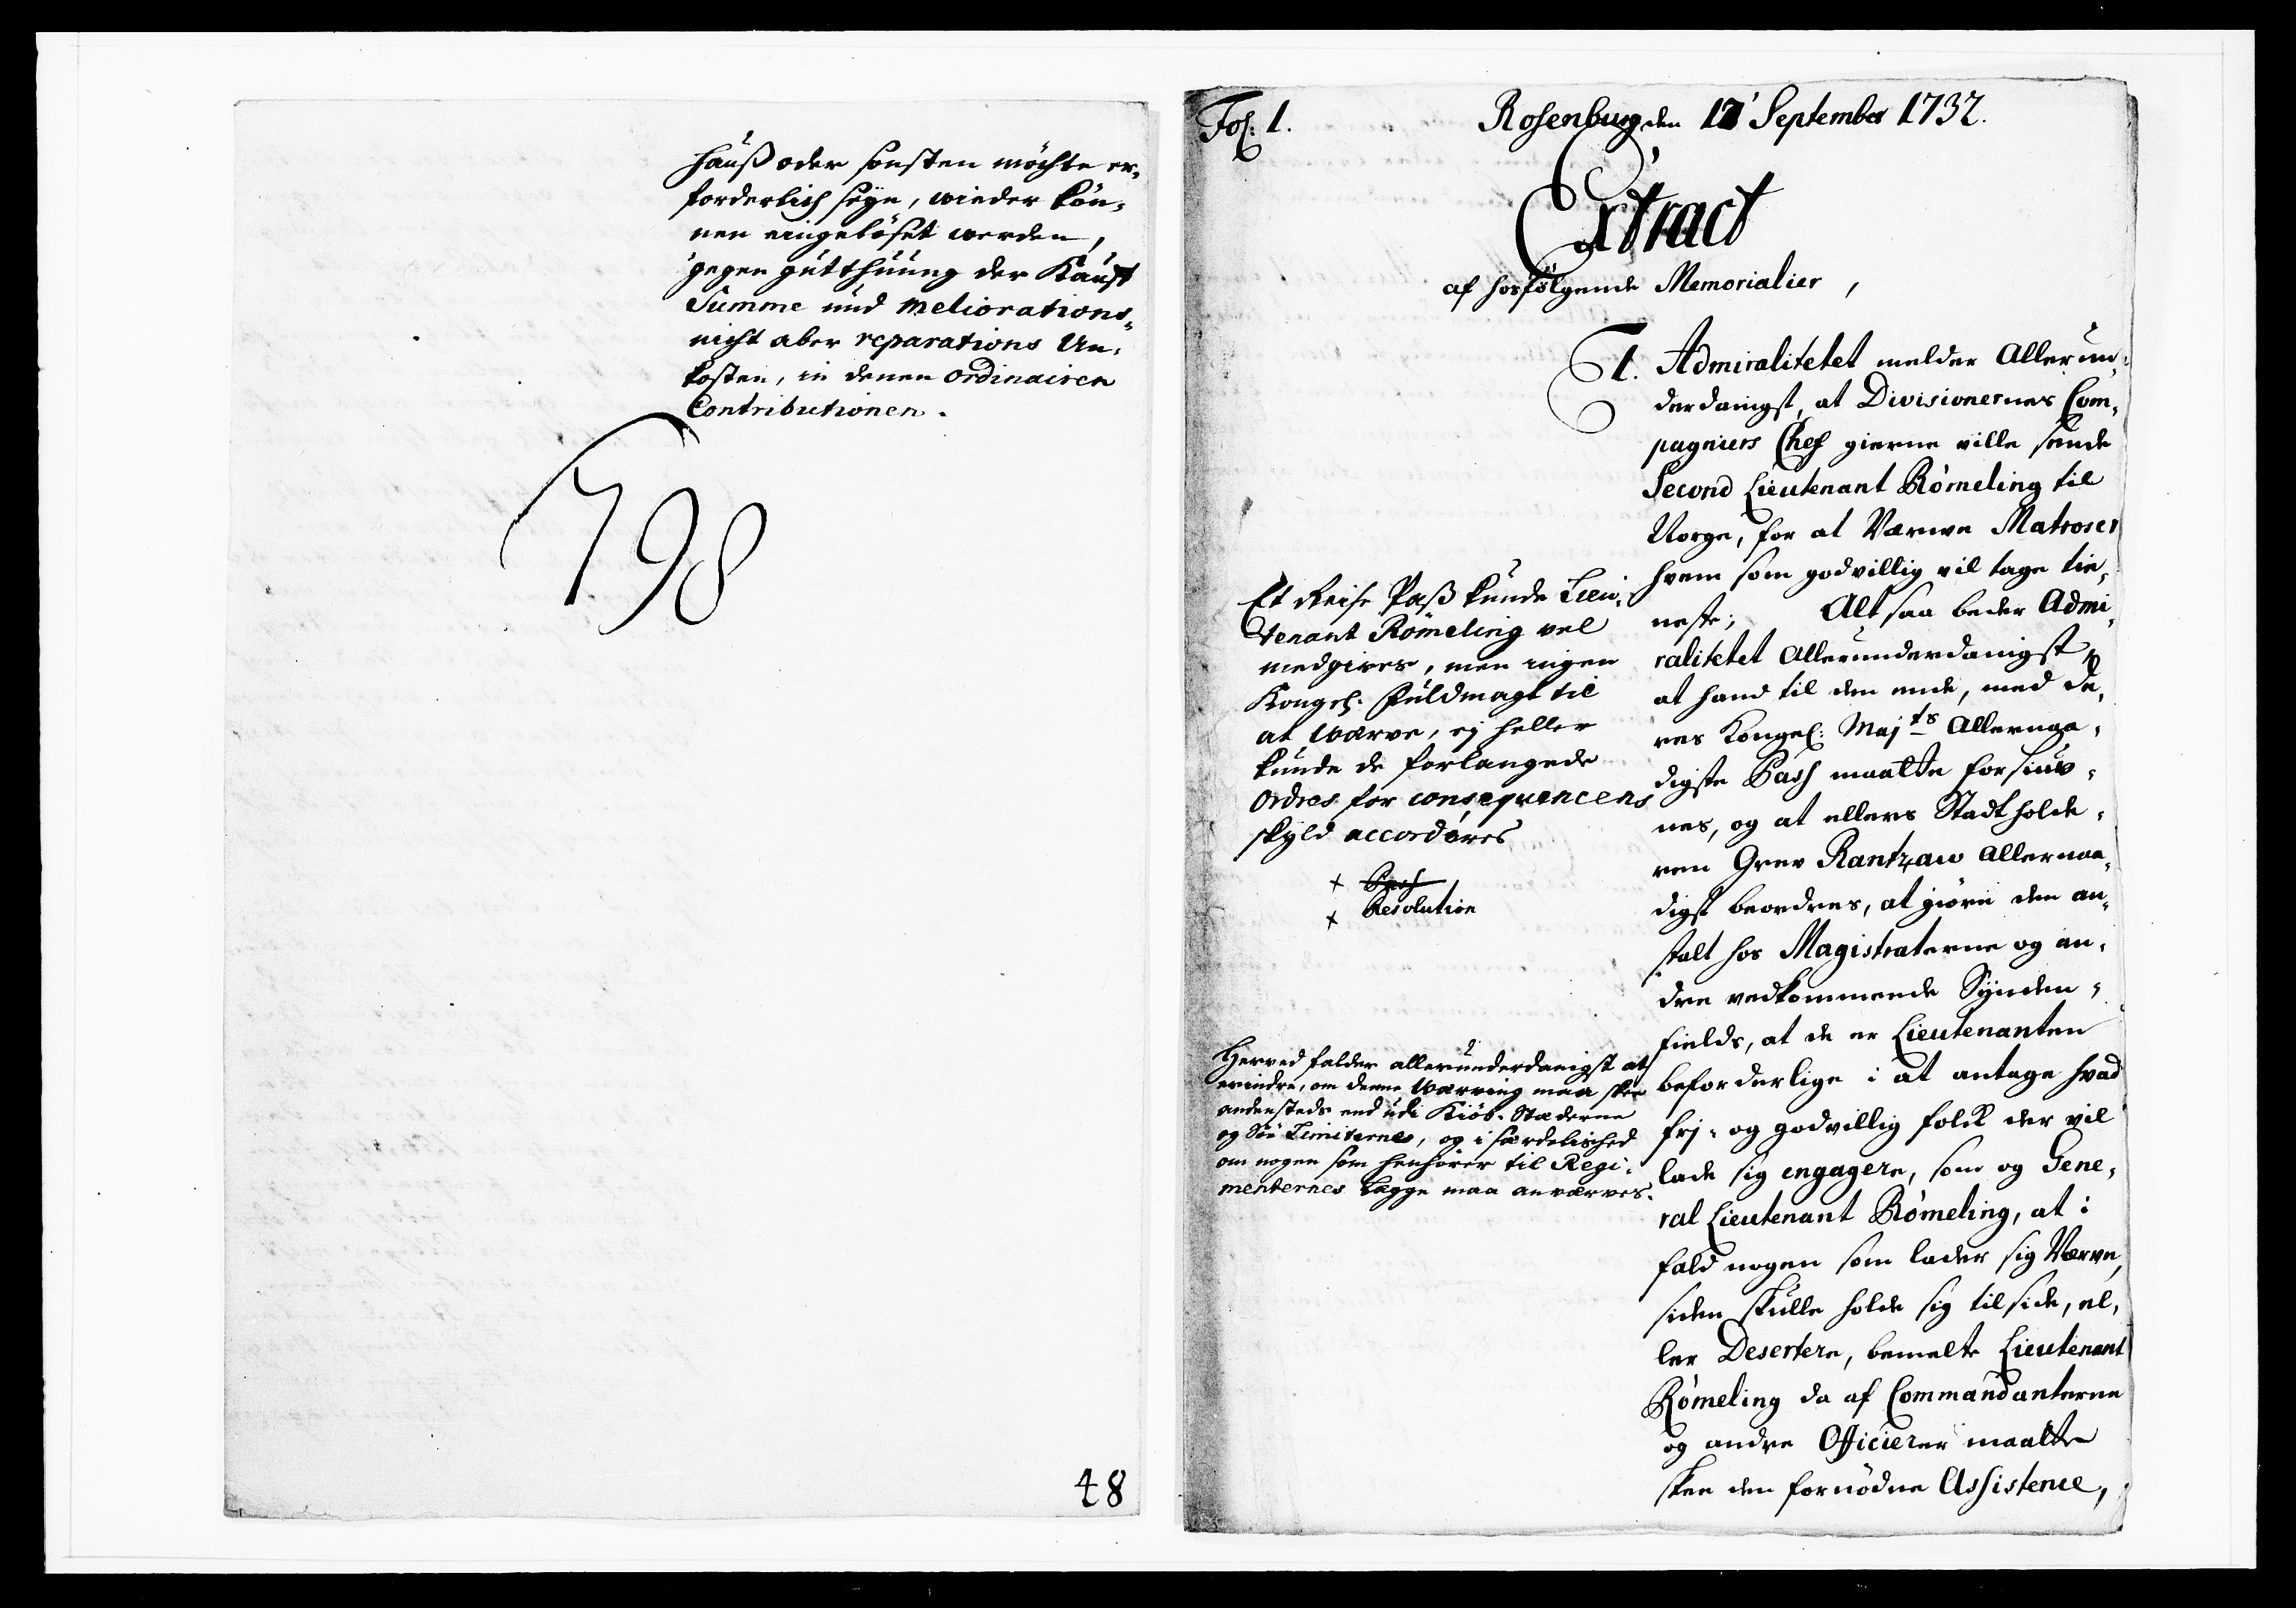 hauß oder sonsten möchte er-
forderlich seyn, wieder kön-
nen eingelöset werden,
gegen gutthuung der Kauff
Summe und meliorations-
nicht aber reparations Un-
kosten, in denen ordinairen
Contributionen.
798
48
Fol: 1.
Rosenburg den 12 September 1732.
Extract
af hosfölgende Memorialier,
1. Admiralitetet melder Allerun-
derdanigst, at Divisionernes Com-
pagniers Chef gierne ville sende
Second Lieutenant Römeling til
Norge, for at Värwe Matroser
hvem som godvillig vil tage tie-
neste; Alt saa beder Admi-
ralitetet Allerunderdanigst,
at hand til den ende, med De-
res Kongel: Maj:ts Allernaa-
digste Pass maatte forsiuv-
nes, og at ellers Stadtholde-
ren Grev Rantzaw Allernaa-
digst beordres, at giöre den an-
stalt hos Magistraterne og an-
dre vedkommende Synden-
fields, at de er Lieutenanten
beforderlige i at antage hvad
frj- og godvillig folck der vil
lade sig engagere, som og Gene-
ral Lieutenant Römeling, at i
fald nogen som lader sig Värve,
siden skulle holde sig til side, el-
ler Desertere, bemelte Lieutenant
Römeling da af Commandanterne
og andre Officierer maatte
skee den fornödne Assistence,
Et Reise Paß kunde Lieu-
tenant Römeling vel
medgives, men ingen
Kongel: Fuldmagt til
at Wærve, ej heller
kunde de forlangede
Ordres for consequencens
skyld accorderes
+
+ Resolution
Herved falder allerunderdanigst at
erindre, om denne Wærving maa skee
andensteds end udi Kiöb-Stæderne
og Söe Limiterne, og i særdelished
om nogen som henhörer til Regi-
menternes Lægge maa anværves.